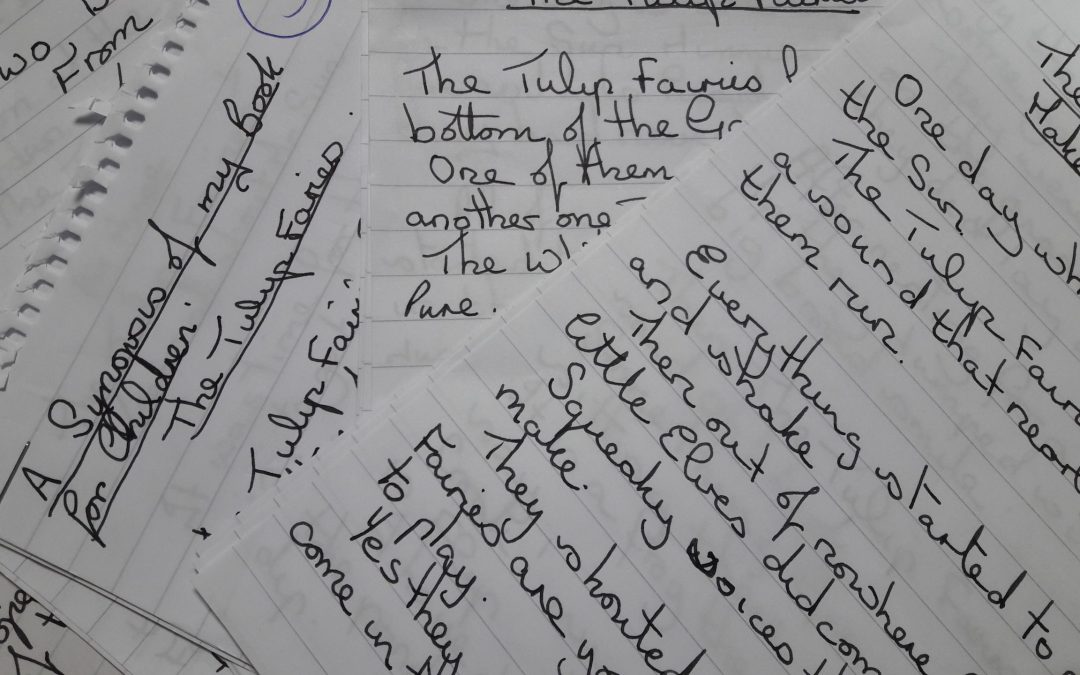 From
A Synopsis of my Book
for Children.
The Tulip Faries.
Tulip Fair
The Tulip Fairies
bottom of the
One of them
another one
The
Pure.
One day
the Sun
The Tulip
a sound that
them run.
Every thing started to
and shake
Then out of nowhere
little Elves did com
Squeaky voices
make.
They shouted
Fairies are yo
to play.
Yes they
come in